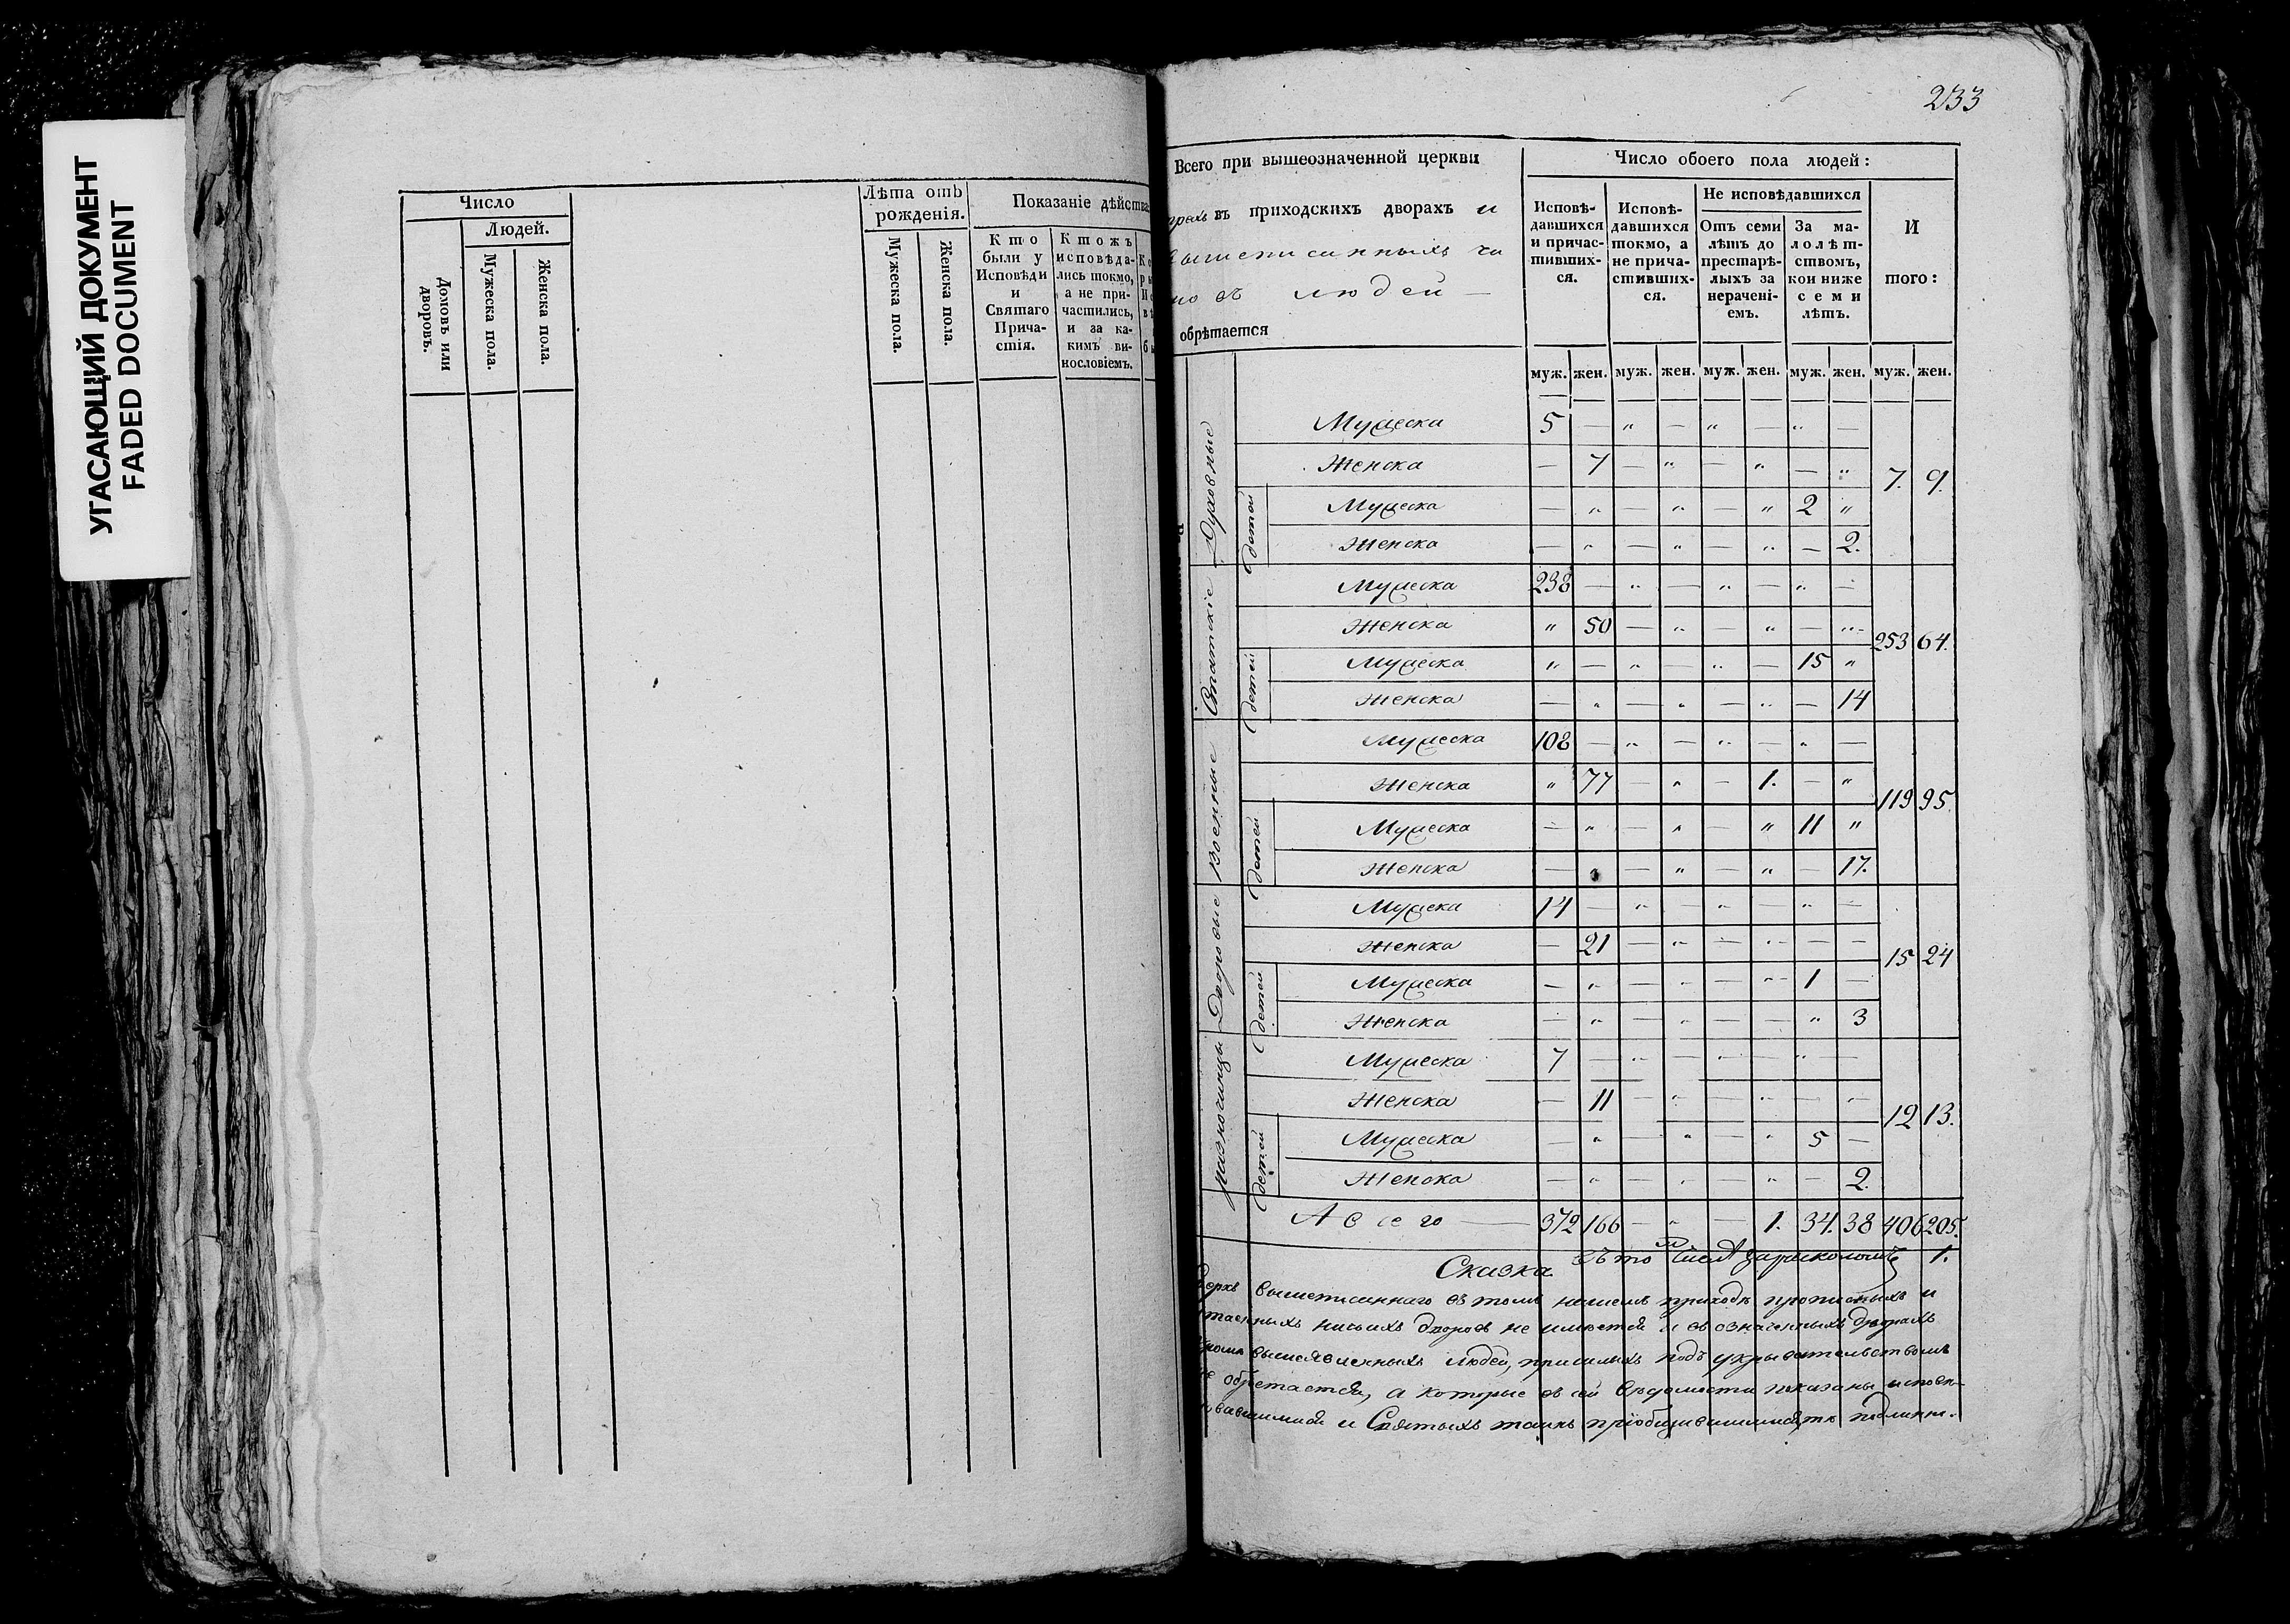 УГАСАЮЩИЙ ДОКУМЕНТ
FADED DOCUMENT
Число
Людей.
Домовъ или дворовъ.
Мужеска пола.
Женска пола.
Лѣта отъ рожденія.
Мужеска пола.
Женска пола.
Показаніе дѣйства
Кто были у Исповѣди и Святаго Причастія.
Ктожъ исповѣдались токмо, а не причастились, и за какимъ винословіемъ.
233
Всего при вышеозначенной церкви
въ приходскихъ дворахъ и
вышеписанныхъ чи
людей —
обрѣтается
Число обоего пола людей:
Исповѣдавшихся и причастившихся.
Исповѣдавшихся токмо, а не причастившихся.
Не исповѣдавшихся
Отъ семи лѣтъ до престарѣлыхъ за нераченіемъ.
За малолѣтствомъ, кои ниже семи лѣтъ.
И того:
муж. жен. муж. жен. муж. жен. муж. жен. муж. жен.
Духовные
Мужеска 5 — „ — „ — „ —
Женска — 7 — „ — „ — „ 7. 9.
детей
Мужеска — „ — „ — „ 2 „
Женска — „ — „ — „ — 2.
Статскіе
Мужеска 238 — „ — „ — „ —
Женска „ 50 — „ — „ — „ 253 64.
детей
Мужеска „ — „ — „ — 15 „
Женска — „ — „ — „ — 14
Военные
Мужеска 108 — „ — „ — „ —
Женска „ 77 — „ — 1. — „ 119 95.
детей
Мужеска — „ — „ — „ 11 „
Женска — „ — „ — „ — 17.
Дворовые
Мужеска 14 — „ — „ — „ —
Женска — 21 — „ — „ — — 15 24
детей
Мужеска — „ — „ — „ 1 —
Женска — „ — „ — — „ 3
разночинцы
Мужеска 7 — „ — „ — „ —
Женска — 11 — „ — „ — „ 12 13.
детей
Мужеска — „ — „ — „ 5 —
Женска — „ — „ — „ — 2.
А всего — 372 166 — „ — 1. 34. 38 406 205.
Сказка.
въ то числѣ за расколомъ 1.
вышеписаннаго въ томъ нашемъ приходѣ прописныхъ и
таенныхъ ничьихъ дворовъ не имѣется и въ означенныхъ дворахъ
вышеявленныхъ людей, пришлыхъ подъ укрывательствомъ
не обретается, а которые въ сей ведомости показаны исповѣ-
давшимися и Святыхъ таинъ пріобщившимися, те подлинно.